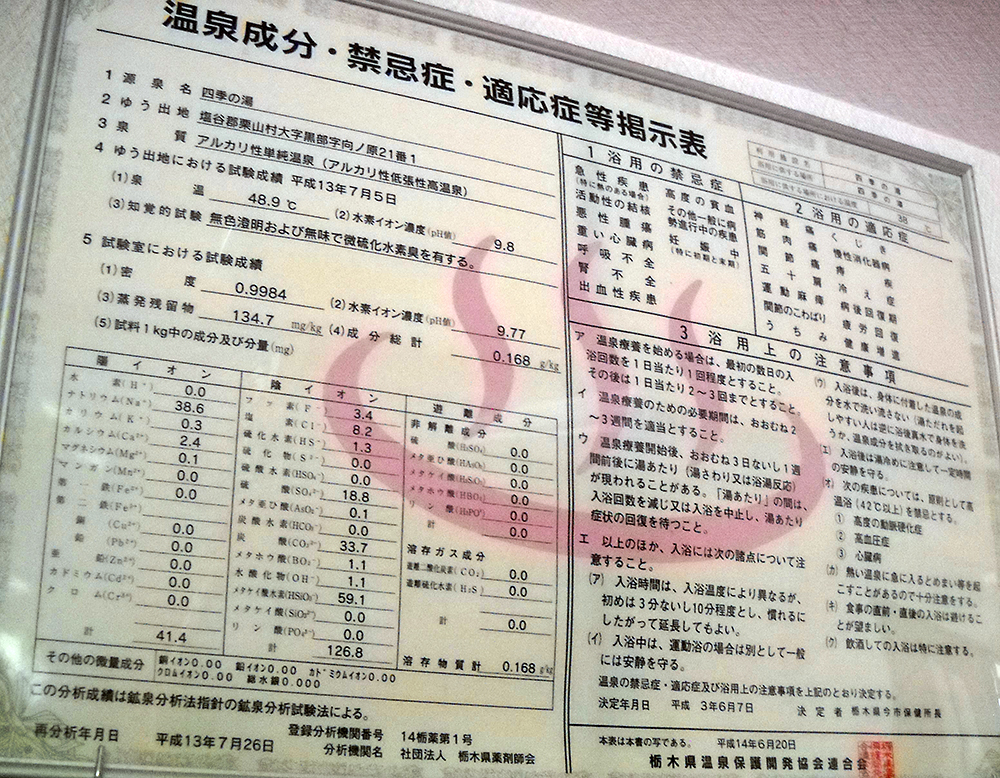 温泉成分・禁忌症・適応症等掲示表
1 源泉名 四季の湯
2 ゆう出地 塩谷郡栗山村大字黒部字向ノ原21番1
3 泉質 アルカリ性単純温泉（アルカリ性低張性高温泉）
4 ゆう出地における試験成績 平成13年7月5日
(1)泉温 48.9 ℃ (2)水素イオン濃度(pH値) 9.8
(3)知覚的試験 無色澄明および無味で微硫化水素臭を有する。
5 試験室における試験成績
(1)密度 0.9984 (2)水素イオン濃度(pH値) 9.77
(3)蒸発残留物 134.7 mg/kg (4)成分総計 0.168 g/kg
(5)試料1kg中の成分及び分量(mg)
陽イオン
水素(H⁺) 0.0
ナトリウム(Na⁺) 38.6
カリウム(K⁺) 0.3
カルシウム(Ca²⁺) 2.4
マグネシウム(Mg²⁺) 0.1
マンガン(Mn²⁺) 0.0
第一鉄(Fe²⁺) 0.0
第二鉄(Fe³⁺)
銅(Cu²⁺) 0.0
鉛(Pb²⁺) 0.0
亜鉛(Zn²⁺) 0.0
カドミウム(Cd²⁺) 0.0
クロム(Cr³⁺) 0.0
計 41.4
陰イオン
フッ素(F⁻) 3.4
塩素(Cl⁻) 8.2
硫化水素(HS⁻) 1.3
硫化物(S²⁻) 0.0
硫酸水素(HSO₄⁻) 0.0
硫酸(SO₄²⁻) 18.8
メタ亜ヒ酸(AsO₂⁻) 0.1
炭酸水素(HCO₃⁻) 0.0
炭酸(CO₃²⁻) 33.7
メタホウ酸(BO₂⁻) 1.1
水酸化物(OH⁻) 1.1
メタケイ酸水素(HSiO₃⁻) 59.1
メタケイ酸(SiO₃²⁻) 0.0
リン酸(PO₄³⁻) 0.0
計 126.8
遊離成分
非解離成分
硫酸(H₂SO₄) 0.0
メタ亜ヒ酸(HAsO₂) 0.0
メタケイ酸(H₂SiO₃) 0.0
メタホウ酸(HBO₂) 0.0
リン酸(H₃PO⁴) 0.0
計 0.0
溶存ガス成分
遊離二酸化炭素(CO₂) 0.0
遊離硫化水素(H₂S) 0.0
計 0.0
溶存物質計 0.168 g/kg
その他の微量成分 銅イオン0.00 鉛イオン0.00 カドミウムイオン0.00
クロムイオン0.00 総水銀0.000
この分析成績は鉱泉分析法指針の鉱泉分析試験法による。
登録分析機関番号 14栃薬第1号
再分析年月日 平成13年7月26日 分析機関名 社団法人 栃木県薬剤師会
四季の湯
四季の湯
38 ℃
1 浴用の禁忌症
急性疾患
(特に熱のある場合)
活動性の結核
悪性腫瘍
重い心臓病
呼吸不全
腎不全
出血性疾患
高度の貧血
その他一般に病
勢進行中の疾患
妊娠中
(特に初期と末期)
2 浴用の適応症
神経痛
筋肉痛
関節痛
五十肩
運動麻痺
関節のこわばり
うちみ
くじき
慢性消化器病
痔疾
冷え症
病後回復期
疲労回復
健康増進
3 浴用上の注意事項
ア 温泉療養を始める場合は、最初の数日の入
浴回数を1日当たり1回程度とすること。
その後は1日当たり2～3回までとすること。
イ 温泉療養のための必要期間は、おおむね2
～3週間を適当とすること。
ウ 温泉療養開始後、おおむね3日ないし1週
間前後に湯あたり（湯さわり又は浴湯反応）
が現われることがある。「湯あたり」の間は、
入浴回数を減じ又は入浴を中止し、湯あたり
症状の回復を待つこと。
エ 以上のほか、入浴には次の諸点について注
意すること。
(ア) 入浴時間は、入浴温度により異なるが、
初めは3分ないし10分程度とし、慣れるに
したがって延長してもよい。
(イ) 入浴中は、運動浴の場合は別として一般
には安静を守る。
(ウ) 入浴後は、身体に付着した温泉の成
分を水で洗い流さない（湯ただれを起
しやすい人は逆に浴後真水で身体を洗
うか、温泉成分を拭き取るのがよい）。
(エ) 入浴後は湯冷めに注意して一定時間
の安静を守る。
(オ) 次の疾患については、原則として高
温浴（42℃以上）を禁忌とする。
① 高度の動脈硬化症
② 高血圧症
③ 心臓病
(カ) 熱い温泉に急に入るとめまい等を起
こすことがあるので十分注意をする。
(キ) 食事の直前・直後の入浴は避けるこ
とが望ましい。
(ク) 飲酒しての入浴は特に注意する。
温泉の禁忌症・適応症及び浴用上の注意事項を上記のとおり決定する。
決定年月日 平成 3年6月7日 決定者 栃木県今市保健所長
本表は本書の写である。 平成14年6月20日
栃木県温泉保護開発協会連合会